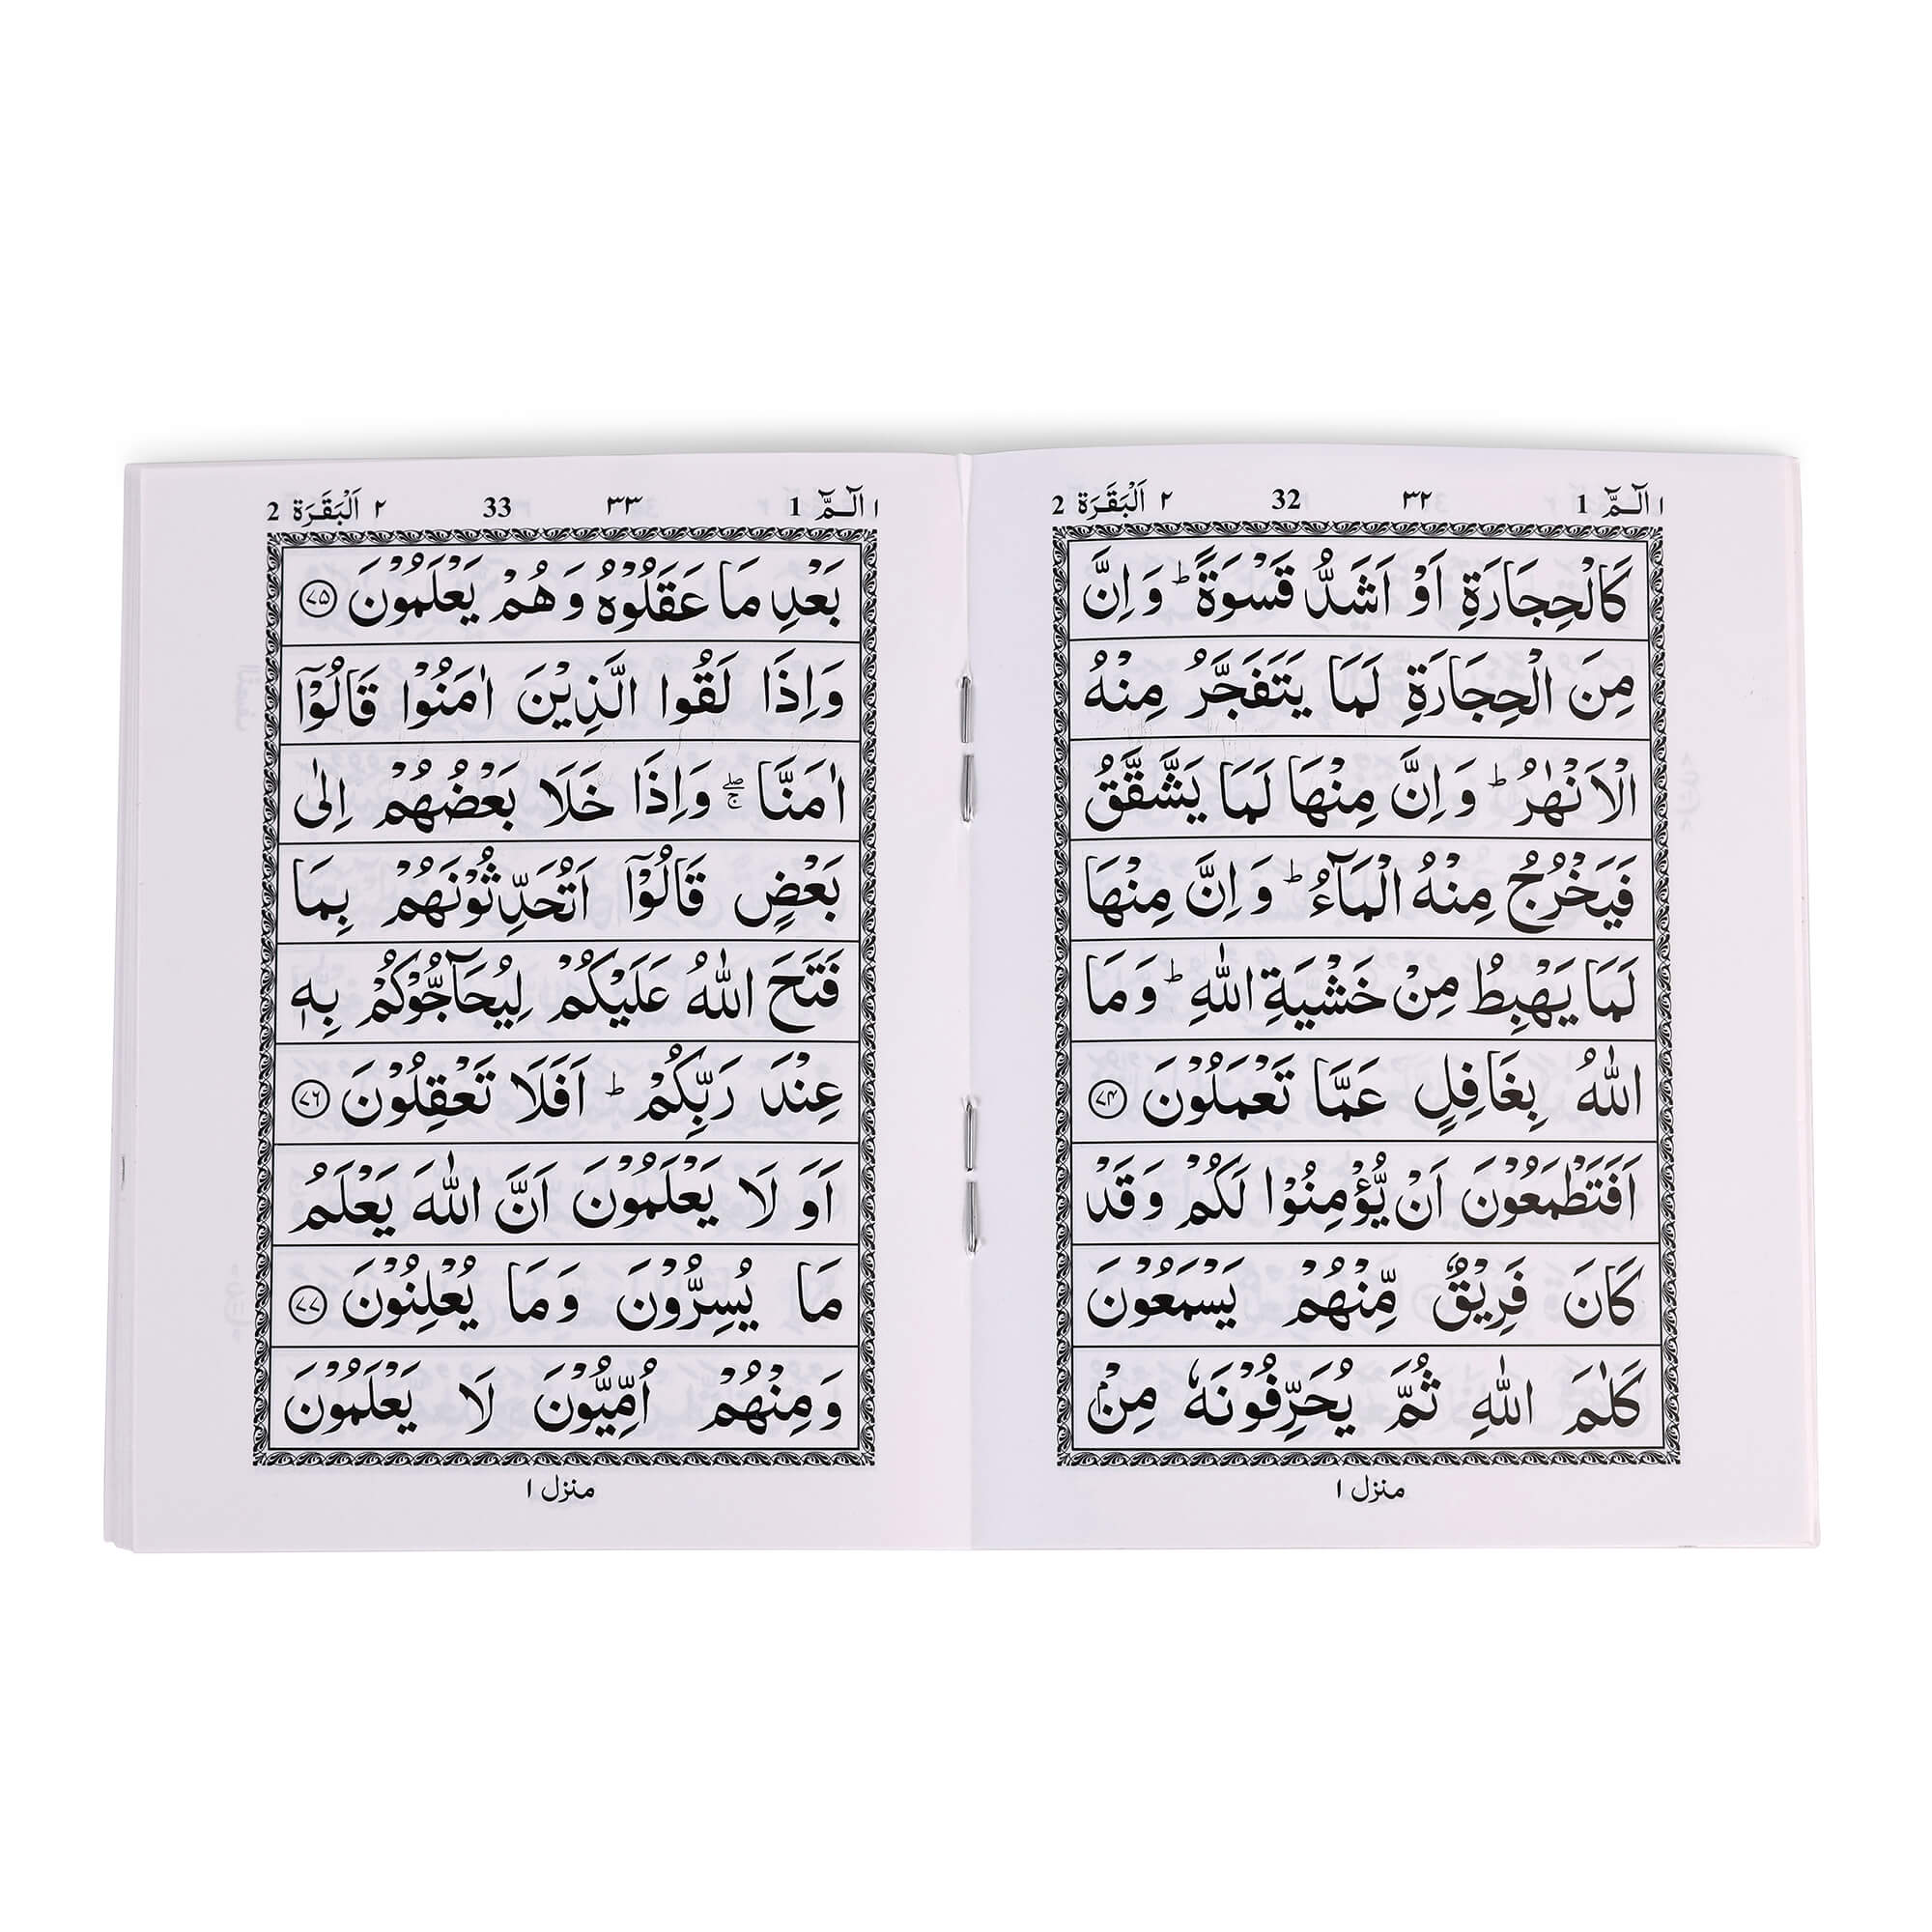 ١ الٓـمّٓ 1 ٣٢ 32 ٢ اَلْبَقَرَة 2
كَالْحِجَارَةِ اَوْ اَشَدُّ قَسْوَةً ؕ وَ اِنَّ
مِنَ الْحِجَارَةِ لَمَا يَتَفَجَّرُ مِنْهُ
الْاَنْهٰرُ ؕ وَ اِنَّ مِنْهَا لَمَا يَشَّقَّقُ
فَيَخْرُجُ مِنْهُ الْمَآءُ ؕ وَ اِنَّ مِنْهَا
لَمَا يَهْبِطُ مِنْ خَشْيَةِ اللّٰهِ ؕ وَ مَا
اللّٰهُ بِغَافِلٍ عَمَّا تَعْمَلُوْنَ ﴿٧٤﴾
اَفَتَطْمَعُوْنَ اَنْ يُّؤْمِنُوْا لَكُمْ وَ قَدْ
كَانَ فَرِيْقٌ مِّنْهُمْ يَسْمَعُوْنَ
كَلٰمَ اللّٰهِ ثُمَّ يُحَرِّفُوْنَهٗ مِنْۢ
منزل ١
١ الٓـمّٓ 1 ٣٣ 33 ٢ اَلْبَقَرَة 2
بَعْدِ مَا عَقَلُوْهُ وَ هُمْ يَعْلَمُوْنَ ﴿٧٥﴾
وَ اِذَا لَقُوا الَّذِيْنَ اٰمَنُوْا قَالُوْۤا
اٰمَنَّا ۖۚ وَ اِذَا خَلَا بَعْضُهُمْ اِلٰى
بَعْضٍ قَالُوْۤا اَتُحَدِّثُوْنَهُمْ بِمَا
فَتَحَ اللّٰهُ عَلَيْكُمْ لِيُحَآجُّوْكُمْ بِهٖ
عِنْدَ رَبِّكُمْ ؕ اَفَلَا تَعْقِلُوْنَ ﴿٧٦﴾
اَوَ لَا يَعْلَمُوْنَ اَنَّ اللّٰهَ يَعْلَمُ
مَا يُسِرُّوْنَ وَ مَا يُعْلِنُوْنَ ﴿٧٧﴾
وَ مِنْهُمْ اُمِّيُّوْنَ لَا يَعْلَمُوْنَ
منزل ١